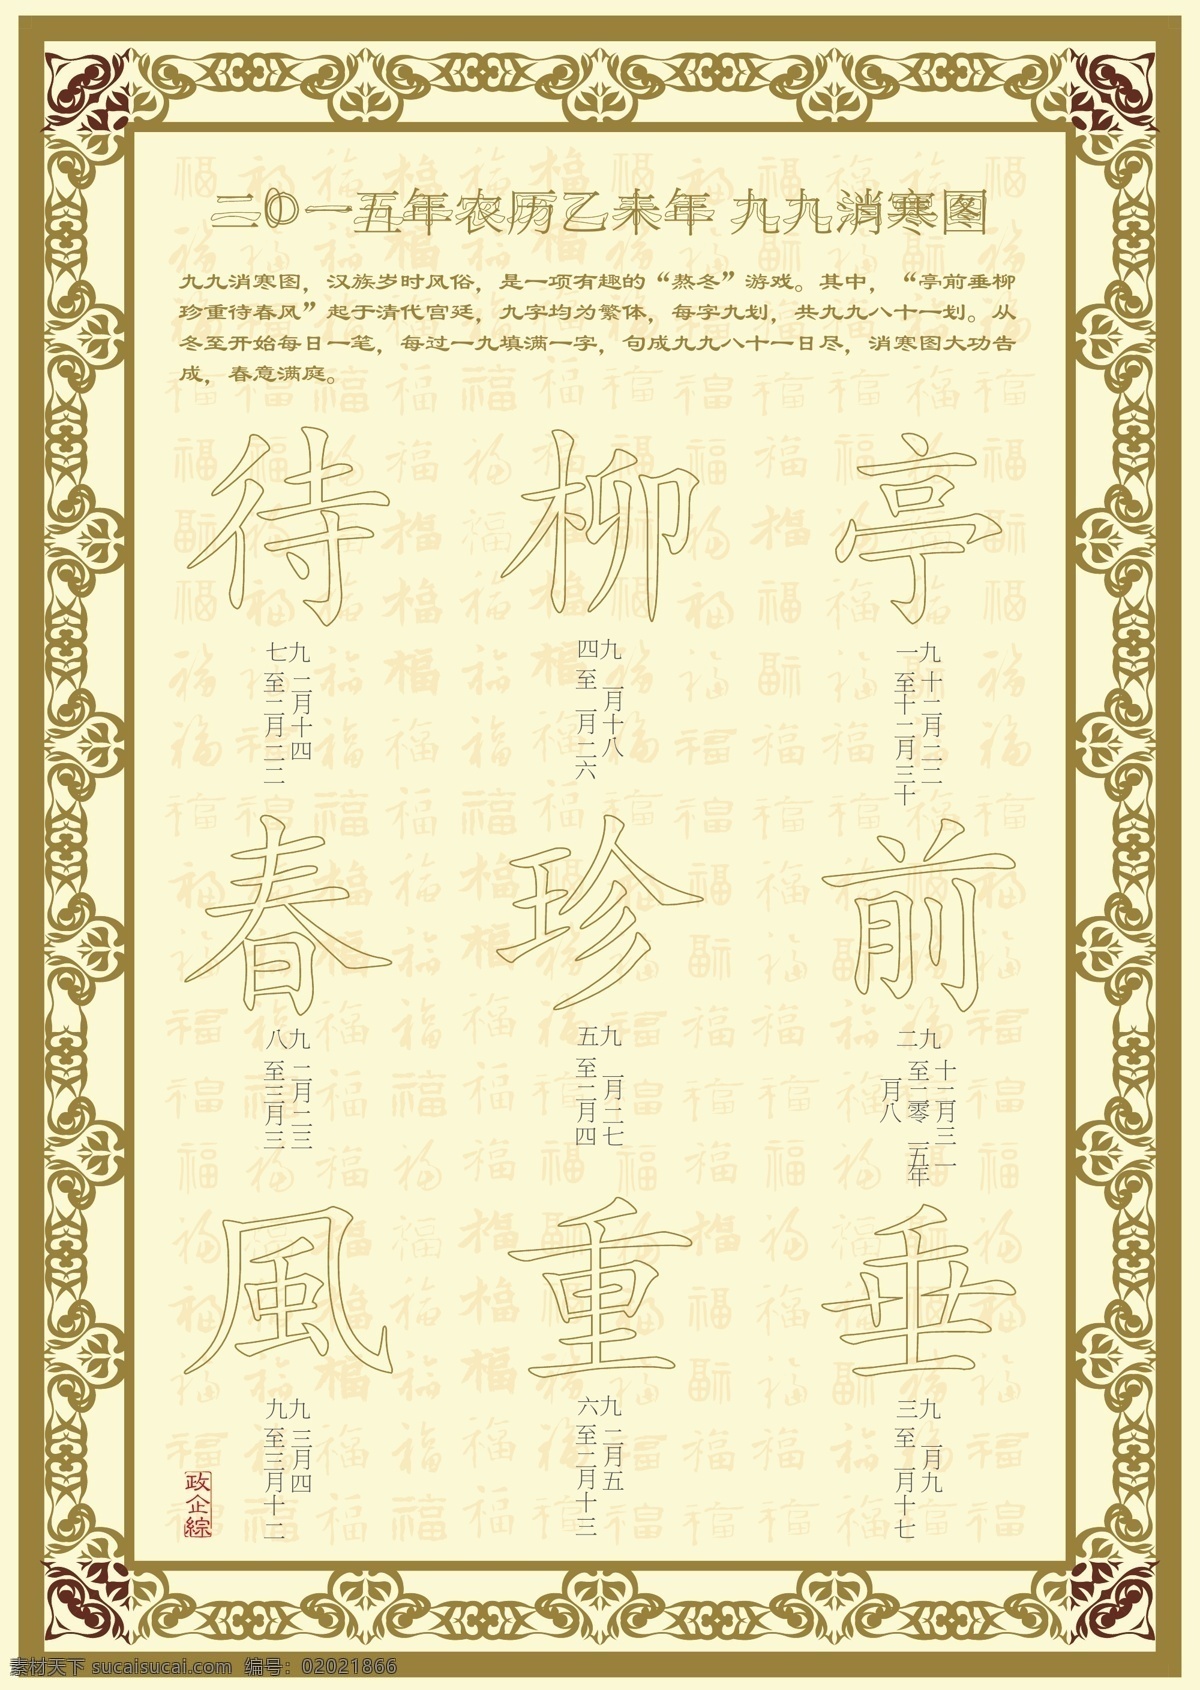 二〇一五年农历乙未年 九九消寒图
九九消寒图，汉族岁时风俗，是一项有趣的“熬冬”游戏。其中，“亭前垂柳
珍重待春风”起于清代宫廷，九字均为繁体，每字九划，共九九八十一划。从
冬至开始每日一笔，每过一九填满一字，句成九九八十一日尽，消寒图大功告
成，春意满庭。
亭
一九 十二月二二
至十二月三十
前
二九 十二月三一
至二零一五年
一月八
垂
三九 一月九
至一月十七
柳
四九 一月十八
至一月二六
珍
五九 一月二七
至二月四
重
六九 二月五
至二月十三
待
七九 二月十四
至二月二二
春
八九 二月二三
至三月三
風
九九 三月四
至三月十二
政企綜
素材天下 sucaisucai.com 编号：02021866